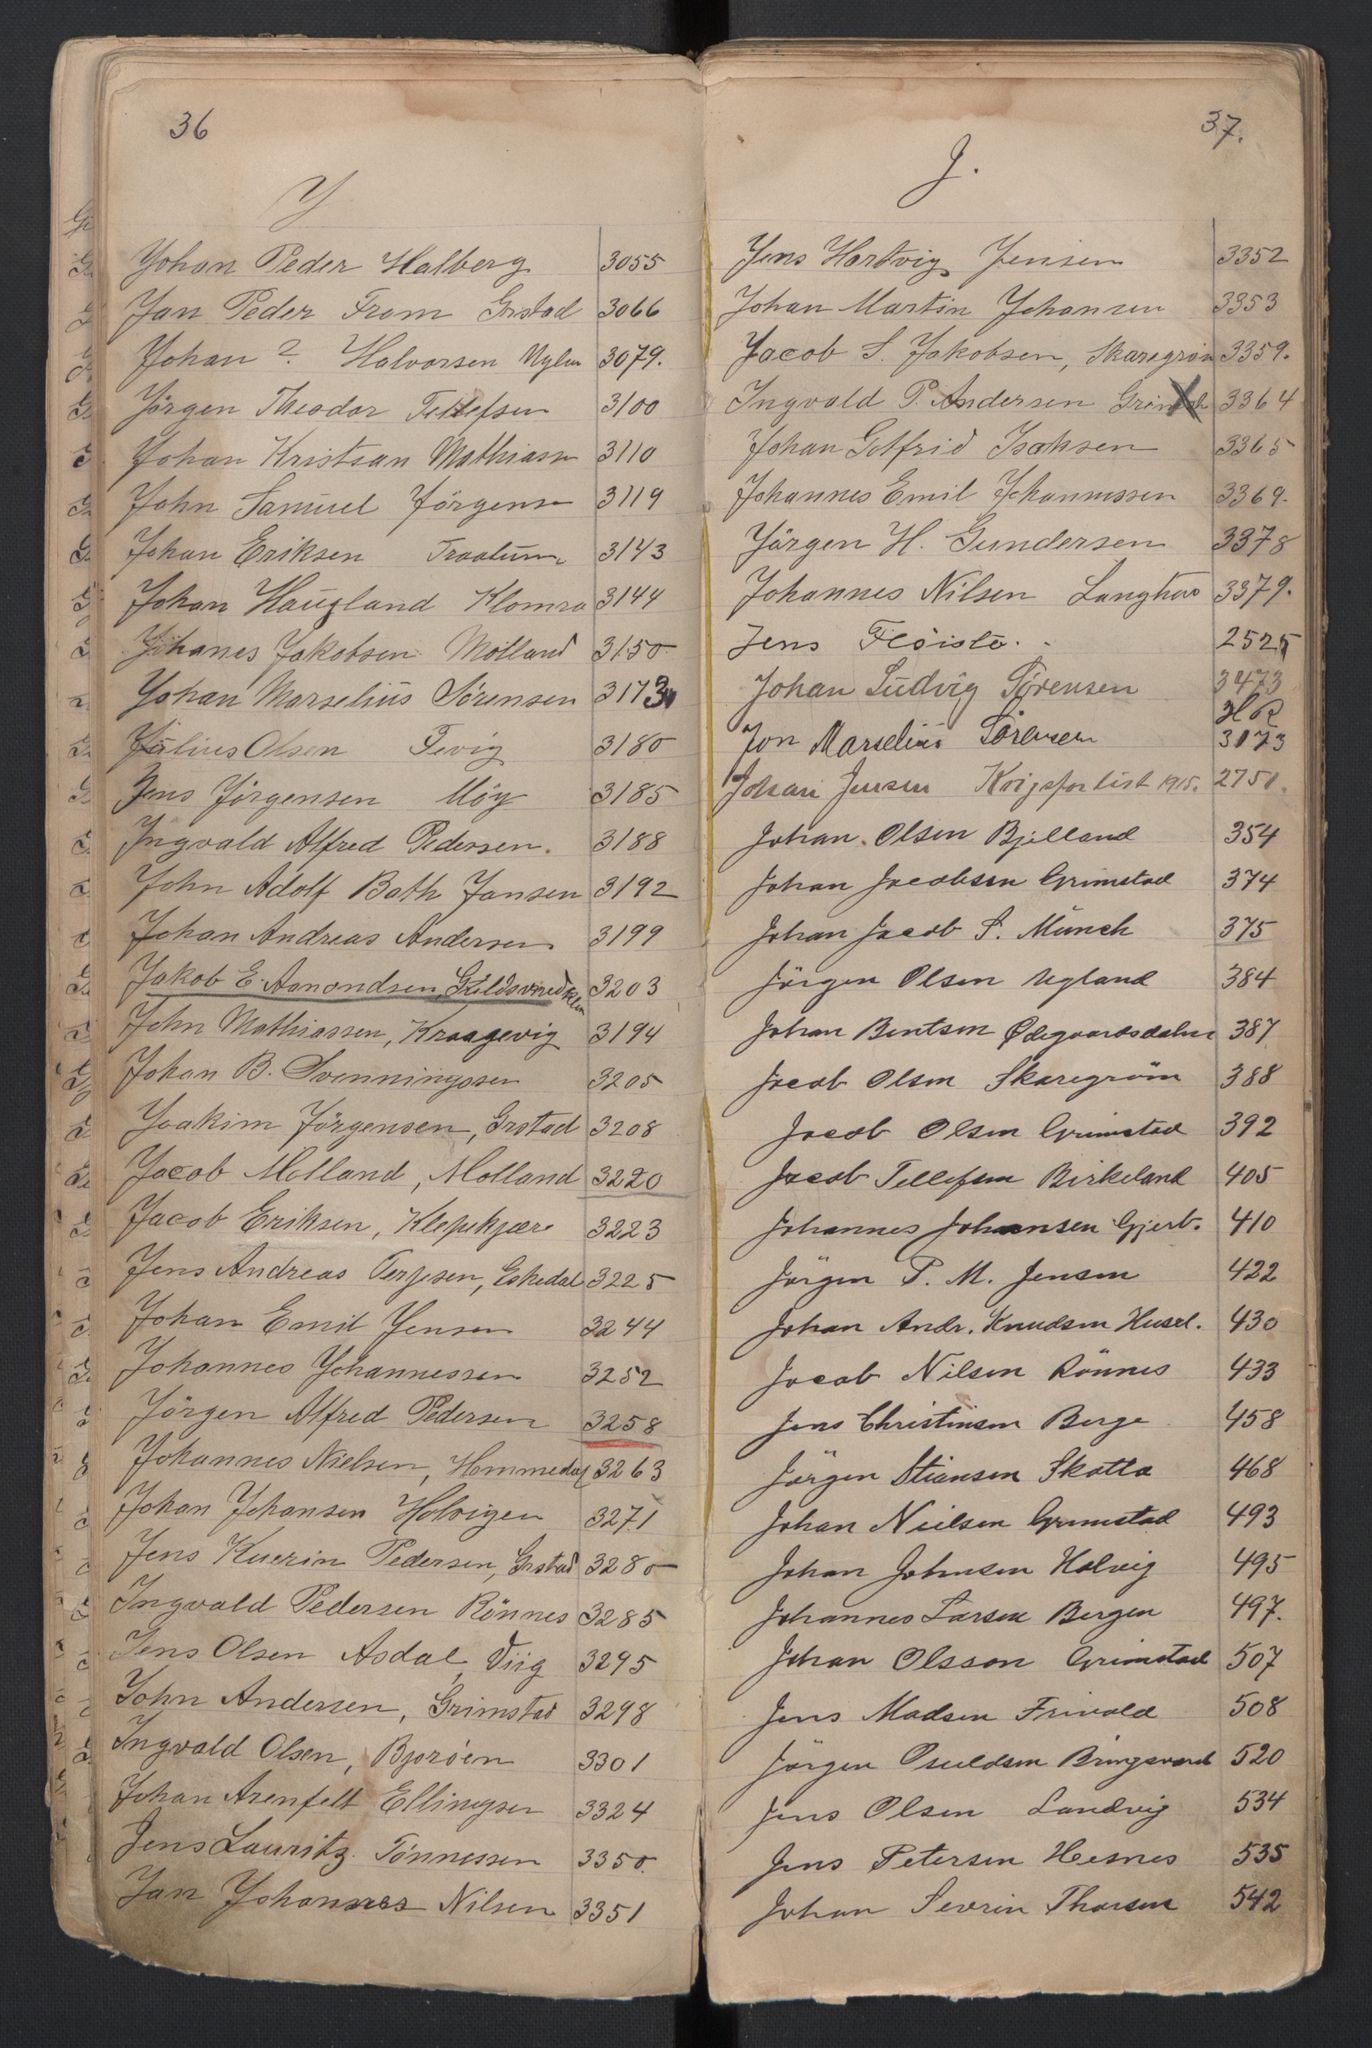 36
J
Johan Peder Halberg 3055
Jan Peder From Grstad 3066
Johan ? Halvorsen 3079.
Jörgen Theodor Tellefsen 3100
Johan Kristian Mathiassn 3110
John Samuel Jörgensn 3119
Johan Eriksen 3143
Johan Haugland Klomra 3144
Johanes Jakobsen Molland 3150
Johan Marselius Sörensen 3173
Julius Olsen Fevig 3180
Jens Jörgensen Möy 3185
Ingvald Alfred Pedersen. 3188
John Adolf Bath Jansen 3192
Johan Andreas Andersen 3199
Jakob E. Asmondsen, 3203
John Mathiassen, Kraagevig 3194
Johan B. Svenningssen 3205
Joakim Jörgensen, Grstad 3208
Jacob Molland, Molland 3220
Jacob Eriksen, Klepekjær 3223
Jens Andreas Terjesen, Eskedal 3225
Johan Emil Jensen 3244
Johannes Johannessen 3252
Jörgen Alfred Pedersen 3258
Johannes Nielsen, Hommedal 3263
Johan Johansen Holvigen 3271
Jens Kverin Pedersen, Grstad 3280
Ingvald Pedersen Rönnes 3285
Jens Olsen Asdal, Viig 3295
John Andersen, Grimstad 3298
Ingvald Olsen, Bjoröen 3301
Johan Arenfelt Ellingsen 3324
Jens Lauritz Tönnessen 3350.
Jan Johannes Nilsen 3351
37.
J.
Jens Hartvig Jensen 3352
Johan Martin Johansen 3353
Jacob S. Jakobsen, Skaregröm 3359.
Ingvald P. Andersen 3364
Johan Gotfrid Isaksen 3365
Johannes Emil Johannessen 3369.
Jörgen H. Gundersen 3378
Johannes Nilsen 3379.
Jens Flöistö. 2525
Johan Ludvig Sörensen 3473
H R
Jon Marselius Sörensen 3173
Johan Jensen Krigsforlist 1915. 2751.
Johan. Olsen Bjelland 354
Johan Jacobsen Grimstad 374
Johan Jacob S. Münch 375
Jörgen Olsen Ugland 384
Johan Bentsen Ødegaardsdalen 387
Jacob Olsen Skaregröm 388
Jacob Olsen Grimstad 392
Jacob Tellefsen Birkeland 405
Johannes Johansen Gjerb. 410
Jörgen P. M. Jensen 422
Johan Andr. Knudsen Huseb. 430
Jacob Nilsen Rönnes 433
Jens Christensen Berge 458
Jörgen Stiansen Skotta 468
Johan Nielsen Grimstad 493
Johan Johnsen Holvig 495
Johannes Larsen Bergen 497.
Johan Olsson Grimstad 507
Jens Madsen Frivold 508
Jörgen Osuldsen Bringsværd 520
Jens Olsen Landvig 534
Jens Petersen Hesnes 535
Johan Severin Thorsen 542